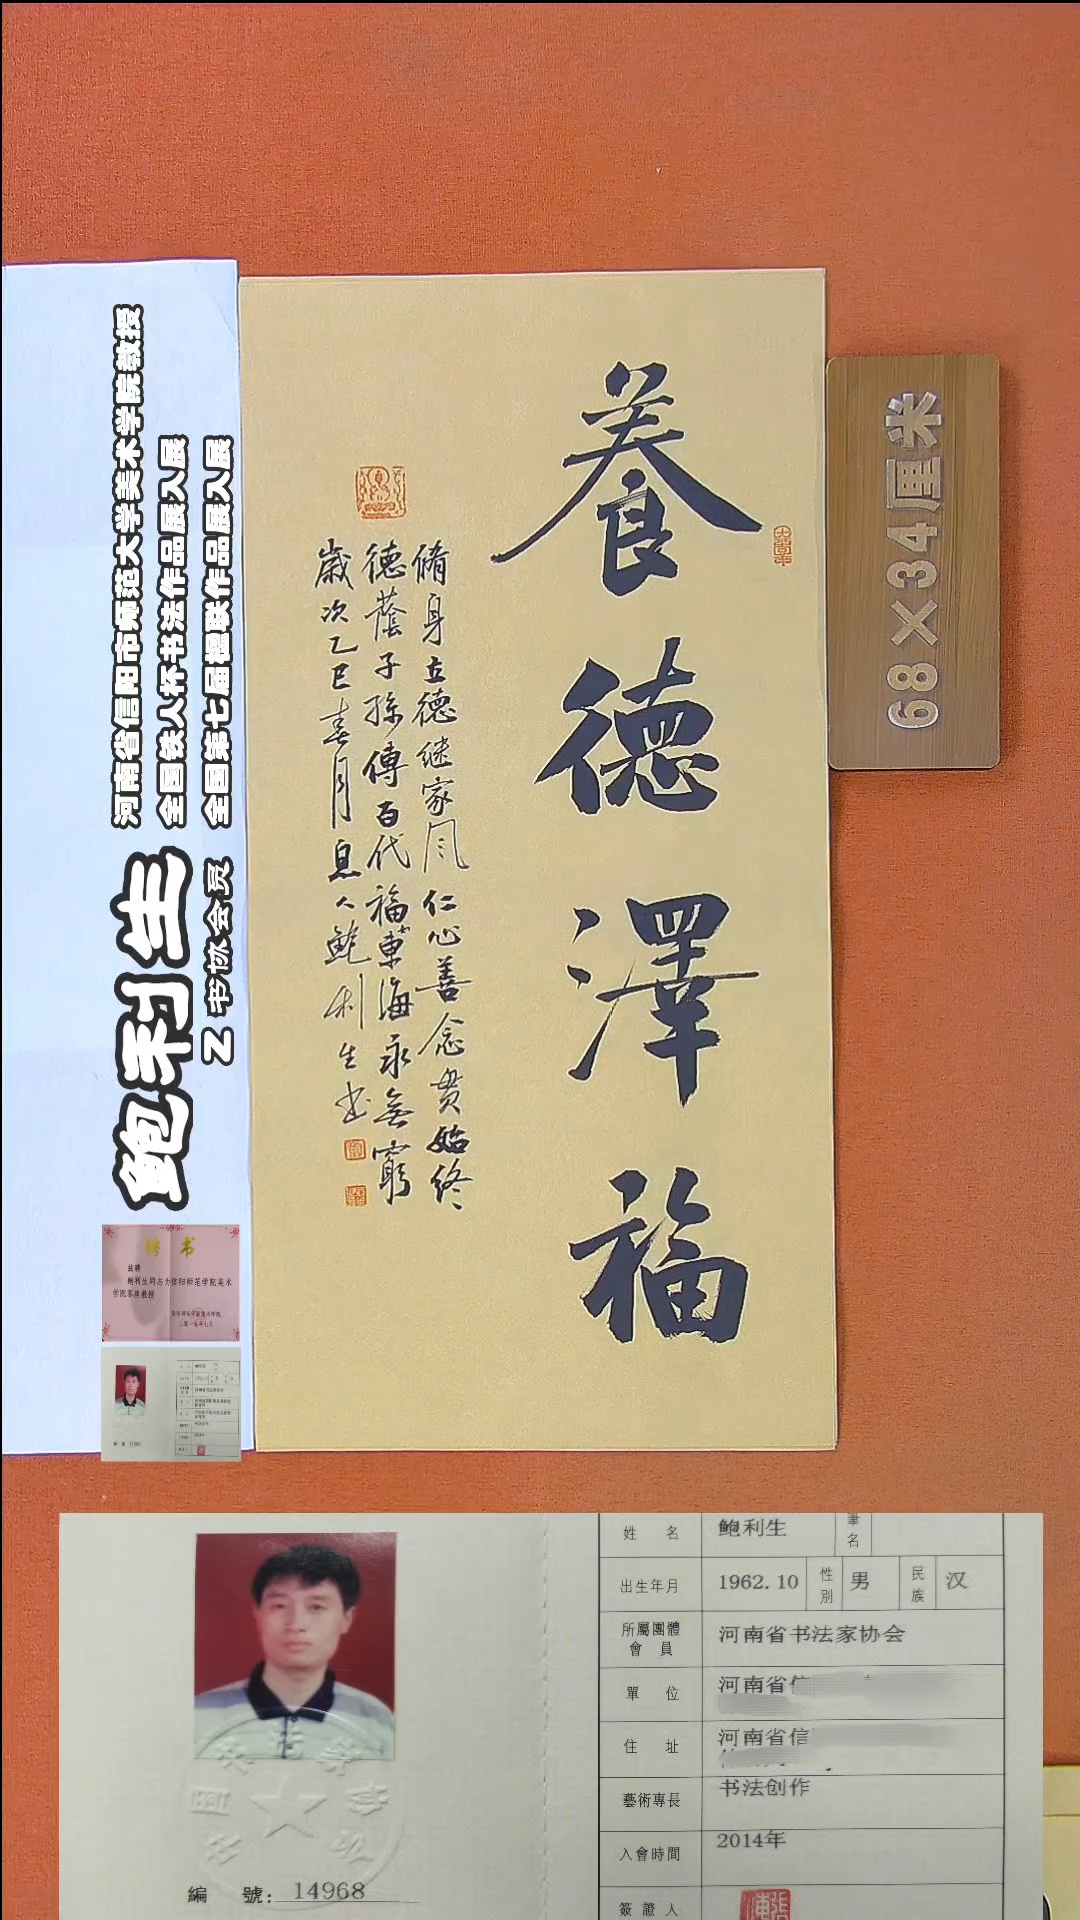 養德澤福
脩身立德继家风仁心善念贯始终
德蔭子孫傳百代福如東海永無窮
歲次乙巳春月息人鲍利生书
68×34厘米
河南省信阳市师范大学美术学院教授
全国铁人杯书法作品展入展
全国第七届楹联作品展入展
鲍利生
Z书协会员
聘书
兹聘
鲍利生同志为信阳师范学院美术
学院客座教授
二零一五年七月
編號:14968
姓名 鲍利生 筆名
出生年月 1962.10 性别 男 民族 汉
所屬團體會員 河南省书法家协会
單位 河南省信
住址 河南省信
藝術專長 书法创作
入會時間 2014年
簽證人